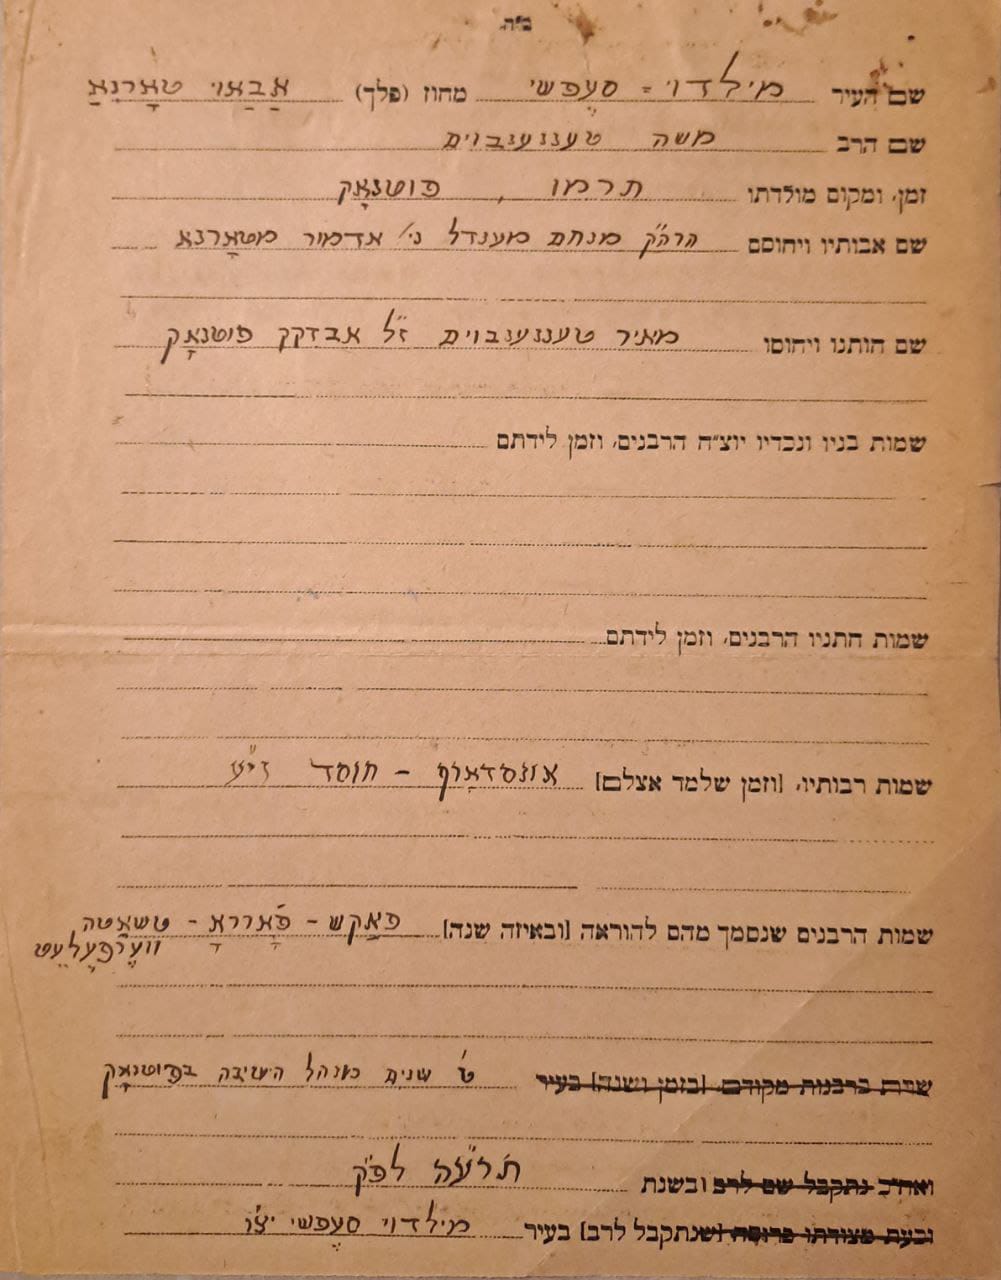 ב״ה.
שם העיר מילדוי = סעפשי מחוז (פלך) אַבַאוי טאָרנאַ
שם הרב משה טעננענבוים
זמן, ומקום מולדתו תרמו , פוטנאָק
שם אבותיו ויחוסם הרה״ק מנחם מענדל ני׳ אדמור מטאָרנא
שם חותנו ויחוסו מאיר טעננענבוים ז״ל אבדקק פוטנאָק
שמות בניו ונכדיו יוצ״ח הרבנים, וזמן לידתם
שמות חתניו הרבנים, וזמן לידתם
שמות רבותיו, [וזמן שלמד אצלם] אונסדאָרף – חוסד זי״ע
שמות הרבנים שנסמך מהם להוראה [ובאיזה שנה] פאַקש – פאָררא – טשאַטה
ווערפעלעט
שירת ברבנות מקודם, [בזמן ושנה] בעיר ט׳ שנים מנהל הישיבה בפוטנאָק
ואח״כ נתקבל שם לרב ובשנת תרעה לפ״ק
ובעת שנתקבל לרב] בעיר מילדוי סעפשי יצ״ו